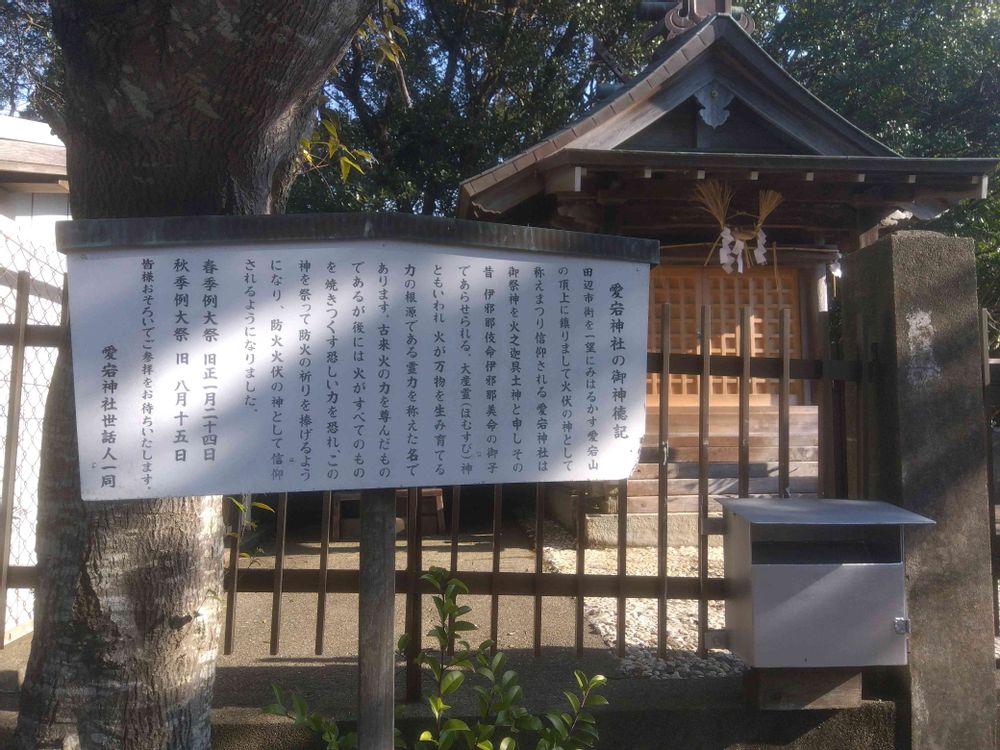 愛宕神社の御神徳記
田辺市街を一望にみはるかす愛宕山
の頂上に鎮りまして火伏の神として
称えまつり信仰される愛宕神社は
御祭神を火之迦具土神と申しその
昔 伊邪那伎命伊邪那美命の御子
であらせられる。大産霊(ほむすび)神
ともいわれ 火が万物を生み育てる
力の根源である霊力を称えた名で
あります。古来 火の力を尊んだもの
であるが後には火がすべてのもの
を焼きつくす恐しい力を恐れ、この
神を祭って防火の祈りを捧げるよう
になり、防火火伏の神として信仰
されるようになりました。
春季例大祭 旧正一月二十四日
秋季例大祭 旧 八月十五日
皆様おそろいでご参拝をお待ちいたします。
愛宕神社世話人一同